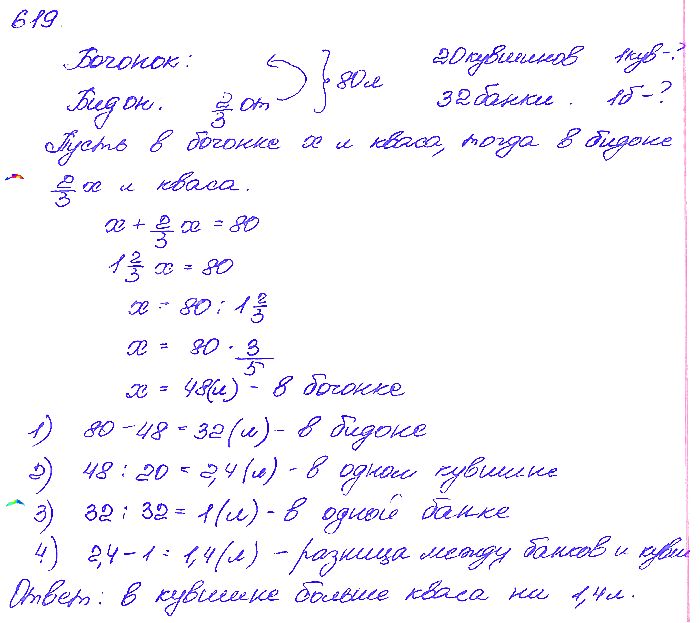 619.
Бочонок: } 80л 20кувшинов 1кув-?
Бидон. 2/3 от 32банки. 1б-?
Пусть в бочонке х л кваса, тогда в бидоне
2/3 х л кваса.
х + 2/3 х = 80
1 2/3 х = 80
х = 80 : 1 2/3
х = 80 · 3/5
х = 48(л) - в бочонке
1) 80 - 48 = 32 (л) - в бидоне
2) 48 : 20 = 2,4 (л) - в одном кувшине
3) 32 : 32 = 1 (л) - в одной банке
4) 2,4 - 1 = 1,4 (л) - разница между банков и кувш
Ответ: в кувшине больше кваса на 1,4л.